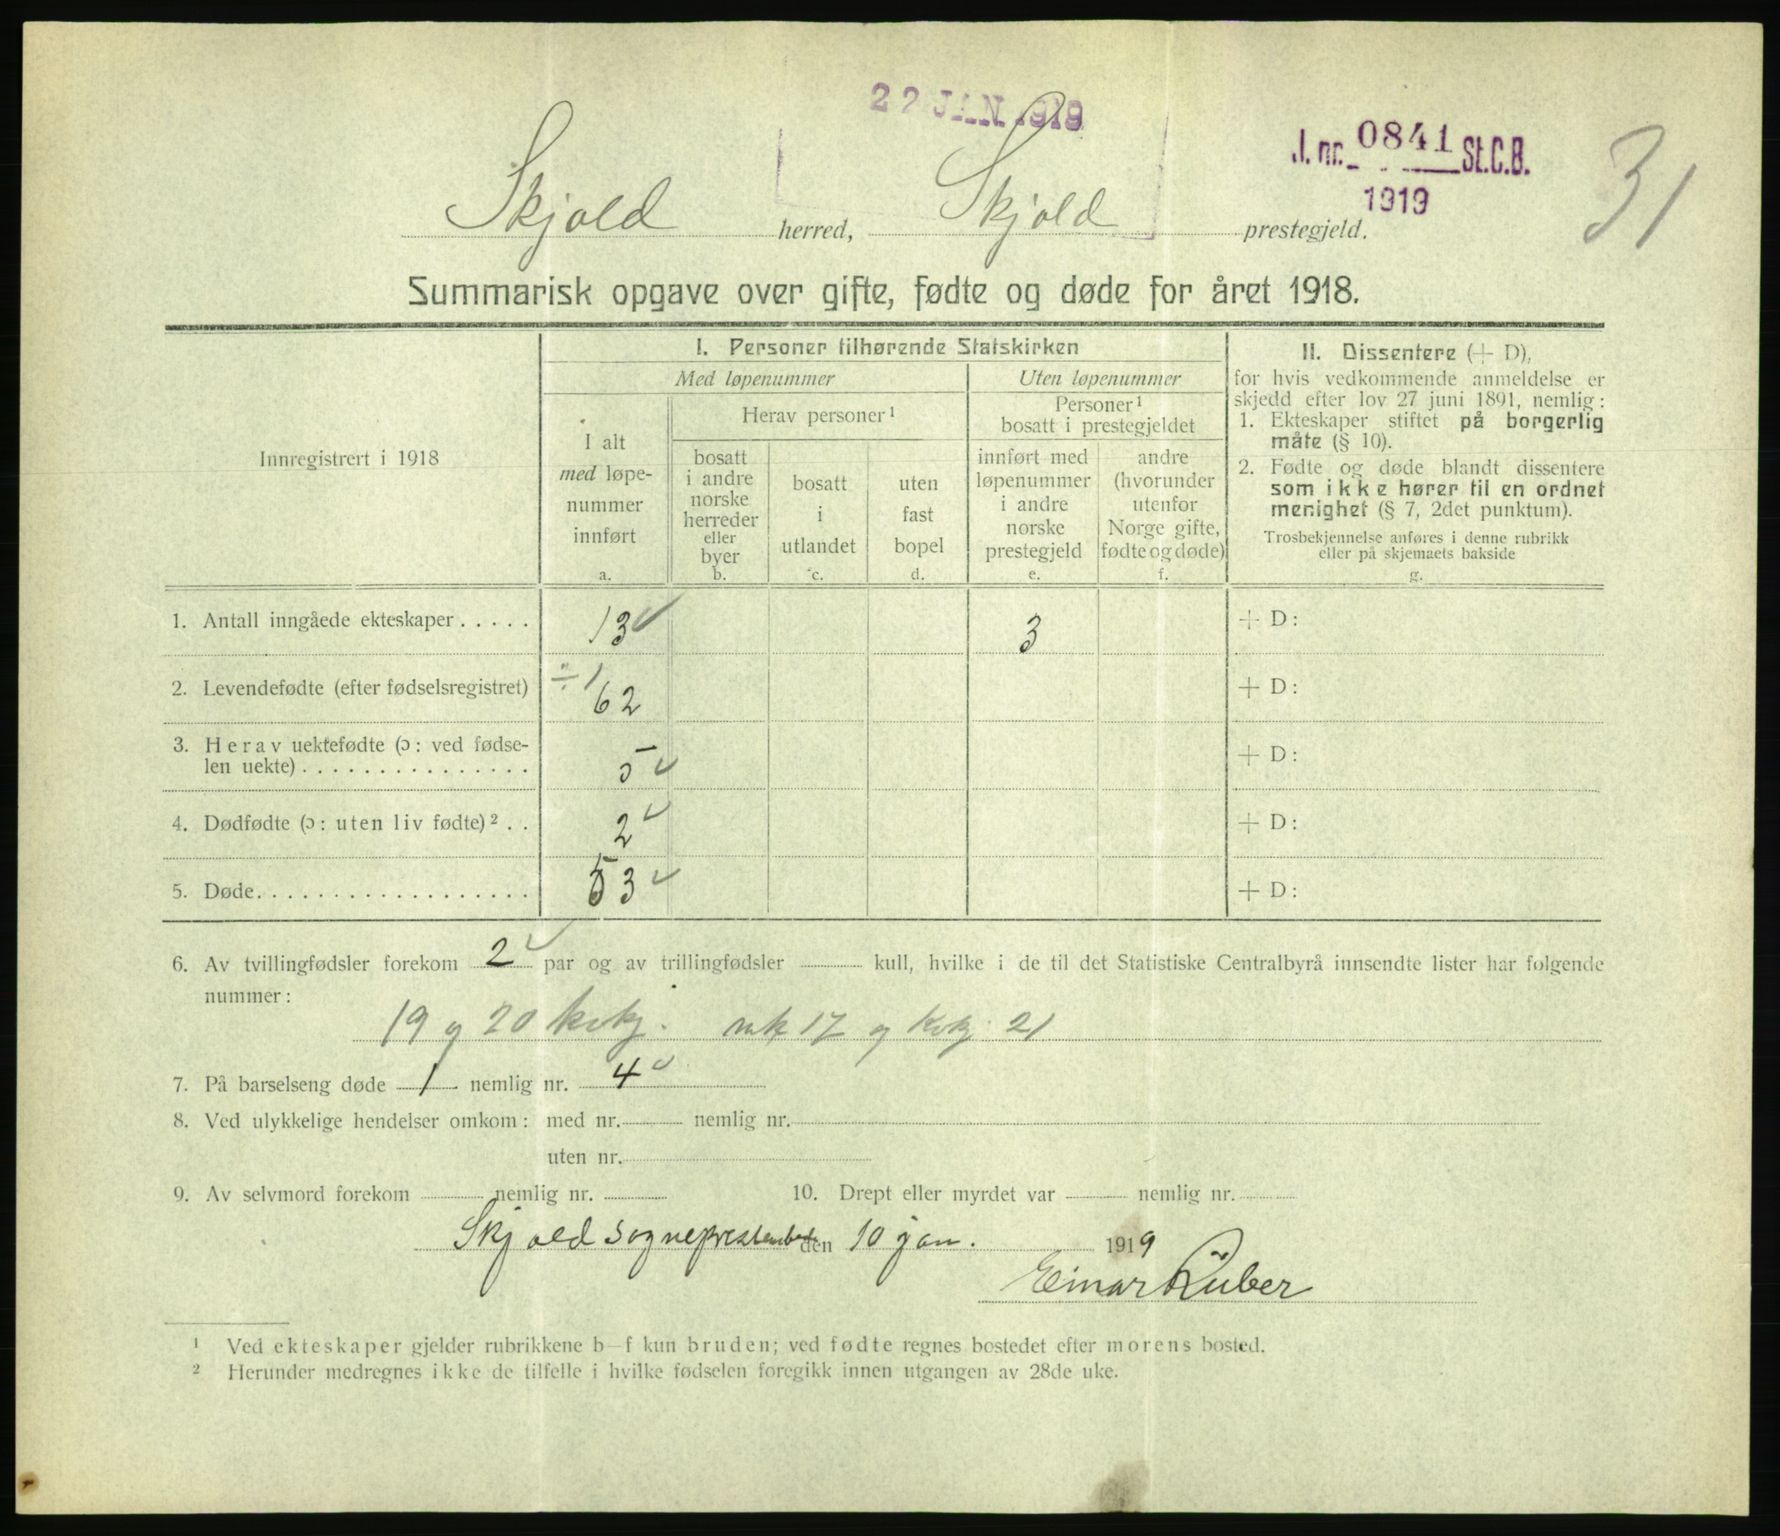 22 JAN 1919
J. nr. 0841 St.C.B.
1919
31
Skjold herred, Skjold prestegjeld.
Summarisk opgave over gifte, fødte og døde for året 1918.
Innregistrert i 1918
I. Personer tilhørende Statskirken
Med løpenummer
Uten løpenummer
I alt
med løpe-
nummer
innført
a.
Herav personer¹
bosatt
i andre
norske
herreder
eller
byer
b.
bosatt
i
utlandet
c.
uten
fast
bopel
d.
Personer¹
bosatt i prestegjeldet
innført med
løpenummer
i andre
norske
prestegjeld
e.
andre
(hvorunder
utenfor
Norge gifte,
fødte og døde)
f.
II. Dissentere (+ D),
for hvis vedkommende anmeldelse er
skjedd efter lov 27 juni 1891, nemlig:
1. Ekteskaper stiftet på borgerlig
måte (§ 10).
2. Fødte og døde blandt dissentere
som ikke hører til en ordnet
menighet (§ 7, 2det punktum).
Trosbekjennelse anføres i denne rubrikk
eller på skjemaets bakside
g.
1. Antall inngåede ekteskaper..... 13 ✓ 3 + D:
÷ 1
2. Levendefødte (efter fødselsregistret) 62 + D:
3. Herav uektefødte (ɔ: ved fødse-
len uekte)............... 5 ✓ + D:
4. Dødfødte (ɔ: uten liv fødte)².. 2 ✓ + D:
5. Døde.................. 53 ✓ + D:
6. Av tvillingfødsler forekom 2 ✓ par og av trillingfødsler ........ kull, hvilke i de til det Statistiske Centralbyrå innsendte lister har følgende
nummer:
19 og 20 kvkj. mk 17 og kvkj. 21
7. På barselseng døde 1 nemlig nr. 4 ✓
8. Ved ulykkelige hendelser omkom: med nr. ........ nemlig nr. ........
uten nr. ........
9. Av selvmord forekom ........ nemlig nr. ........ 10. Drept eller myrdet var ........ nemlig nr. ........
Skjold sogneprestembet den 10 jan. 1919
Einar Lüber
¹ Ved ekteskaper gjelder rubrikkene b—f kun bruden; ved fødte regnes bostedet efter morens bosted.
² Herunder medregnes ikke de tilfelle i hvilke fødselen foregikk innen utgangen av 28de uke.